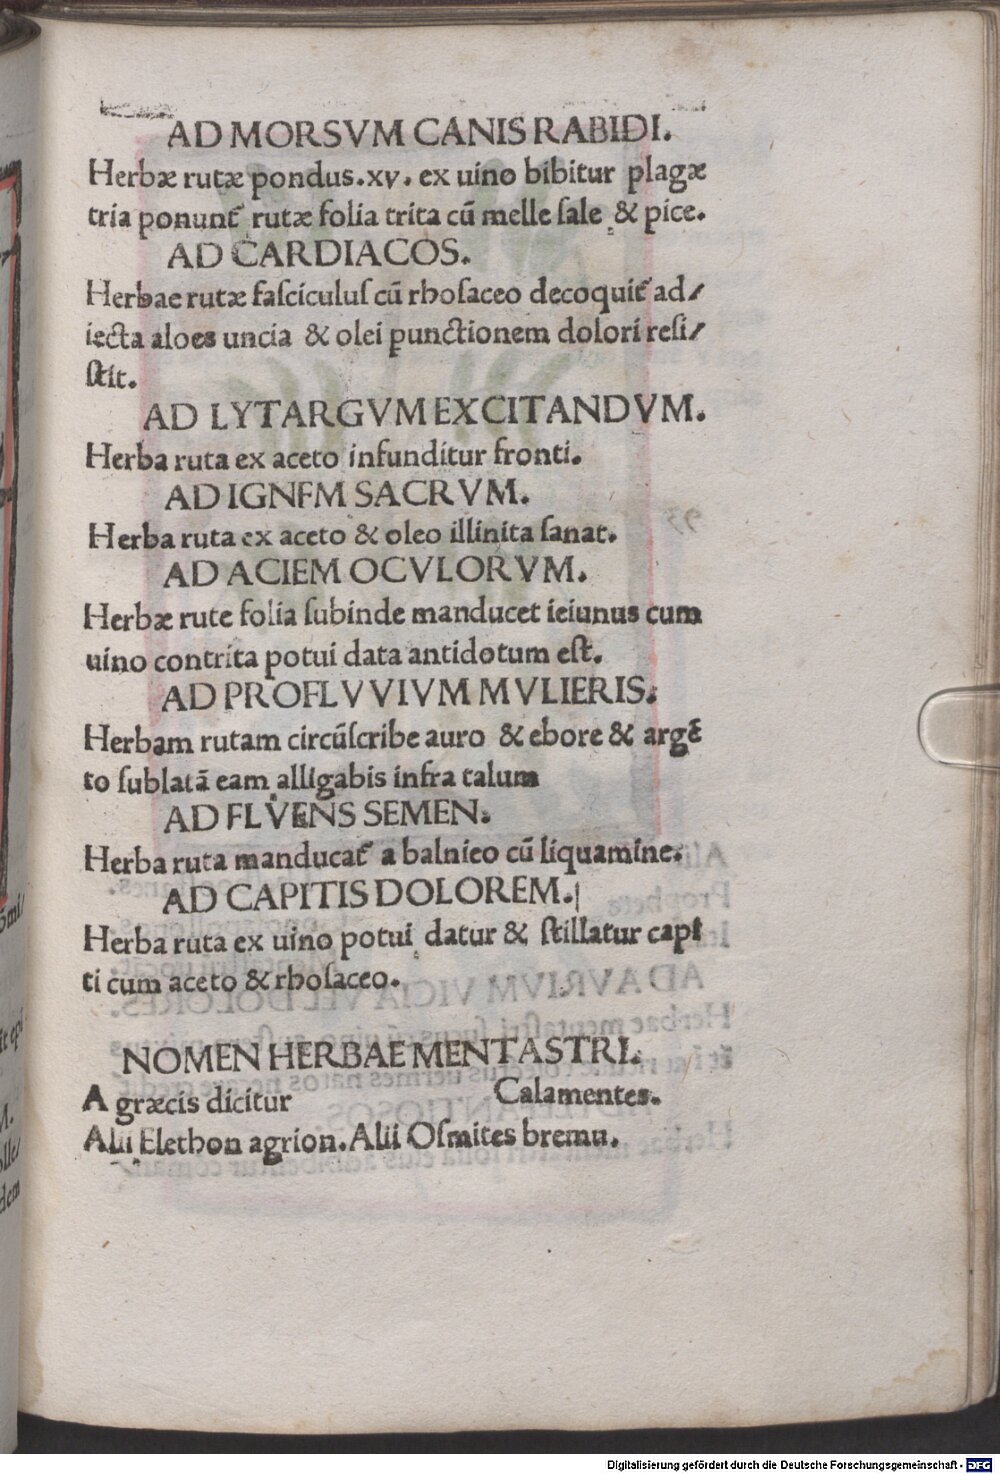 AD MORSVM CANIS RABIDI.
Herbæ rutæ pondus.xv. ex uino bibitur plagæ
tria ponunt᷑ rutæ folia trita cū melle ſale & pice.
AD CARDIACOS.
Herbae rutæ faſciculuſ cū rhoſaceo decoquit᷑ ad/
iecta aloes uncia & olei punctionem dolori reſi/
ſtit.
AD LYTARGVM EXCITANDVM.
Herba ruta ex aceto infunditur fronti.
AD IGNFM SACRVM.
Herba ruta ex aceto & oleo illinita ſanat.
AD ACIEM OCVLORVM.
Herbæ rute folia ſubinde manducet ieiunus cum
uino contrita potui data antidotum eſt.
AD PROFLVVIVM MVLIERIS.
Herbam rutam circūſcribe auro & ebore & argē
to ſublatā eam alligabis infra talum
AD FLVENS SEMEN.
Herba ruta manducat᷑ a balnieo cū liquamine.
AD CAPITIS DOLOREM.
Herba ruta ex uino potui datur & ſtillatur capi
ti cum aceto & rhoſaceo.
NOMEN HERBAE MENTASTRI.
A græcis dicitur Calamentes.
Alii Elethon agrion. Alii Oſmites bremu.
Digitalisierung gefördert durch die Deutsche Forschungsgemeinschaft - DFG